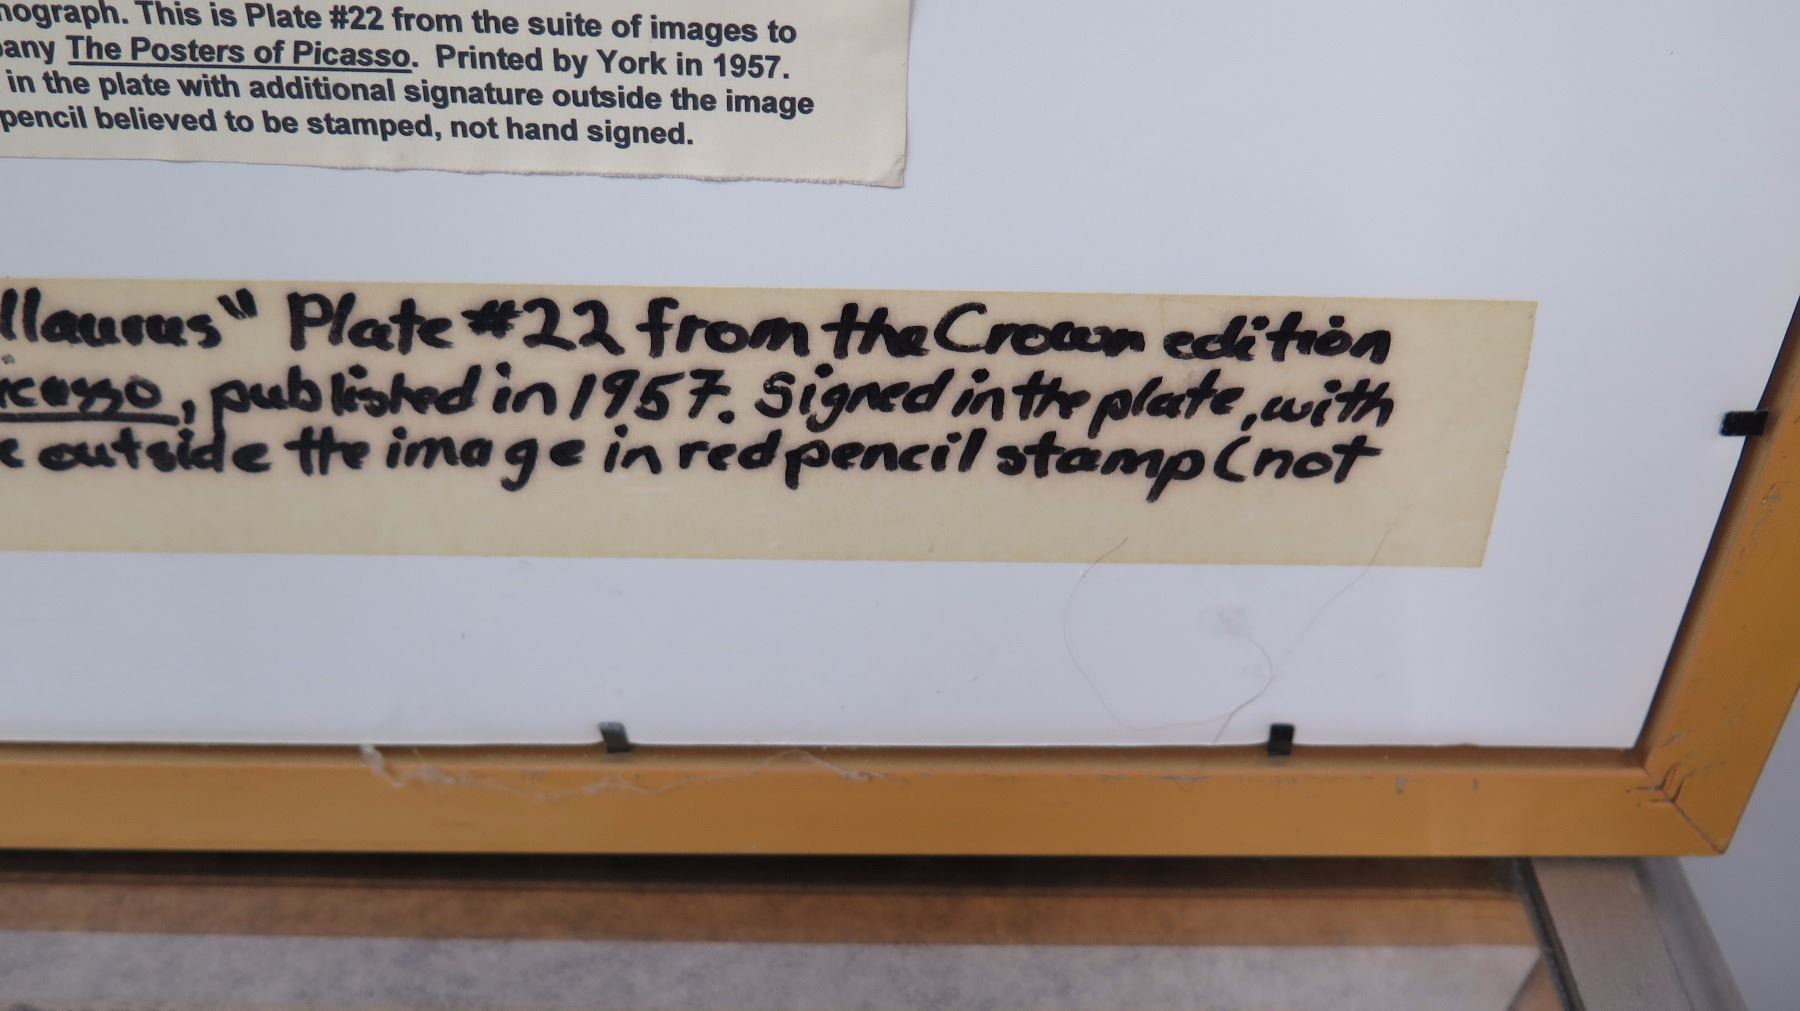 nograph. This is Plate #22 from the suite of images to
pany The Posters of Picasso. Printed by York in 1957.
in the plate with additional signature outside the image
pencil believed to be stamped, not hand signed.
llaurus" Plate #22 from the Crown edition
icasso, published in 1957. Signed in the plate, with
e outside the image in red pencil stamp (not